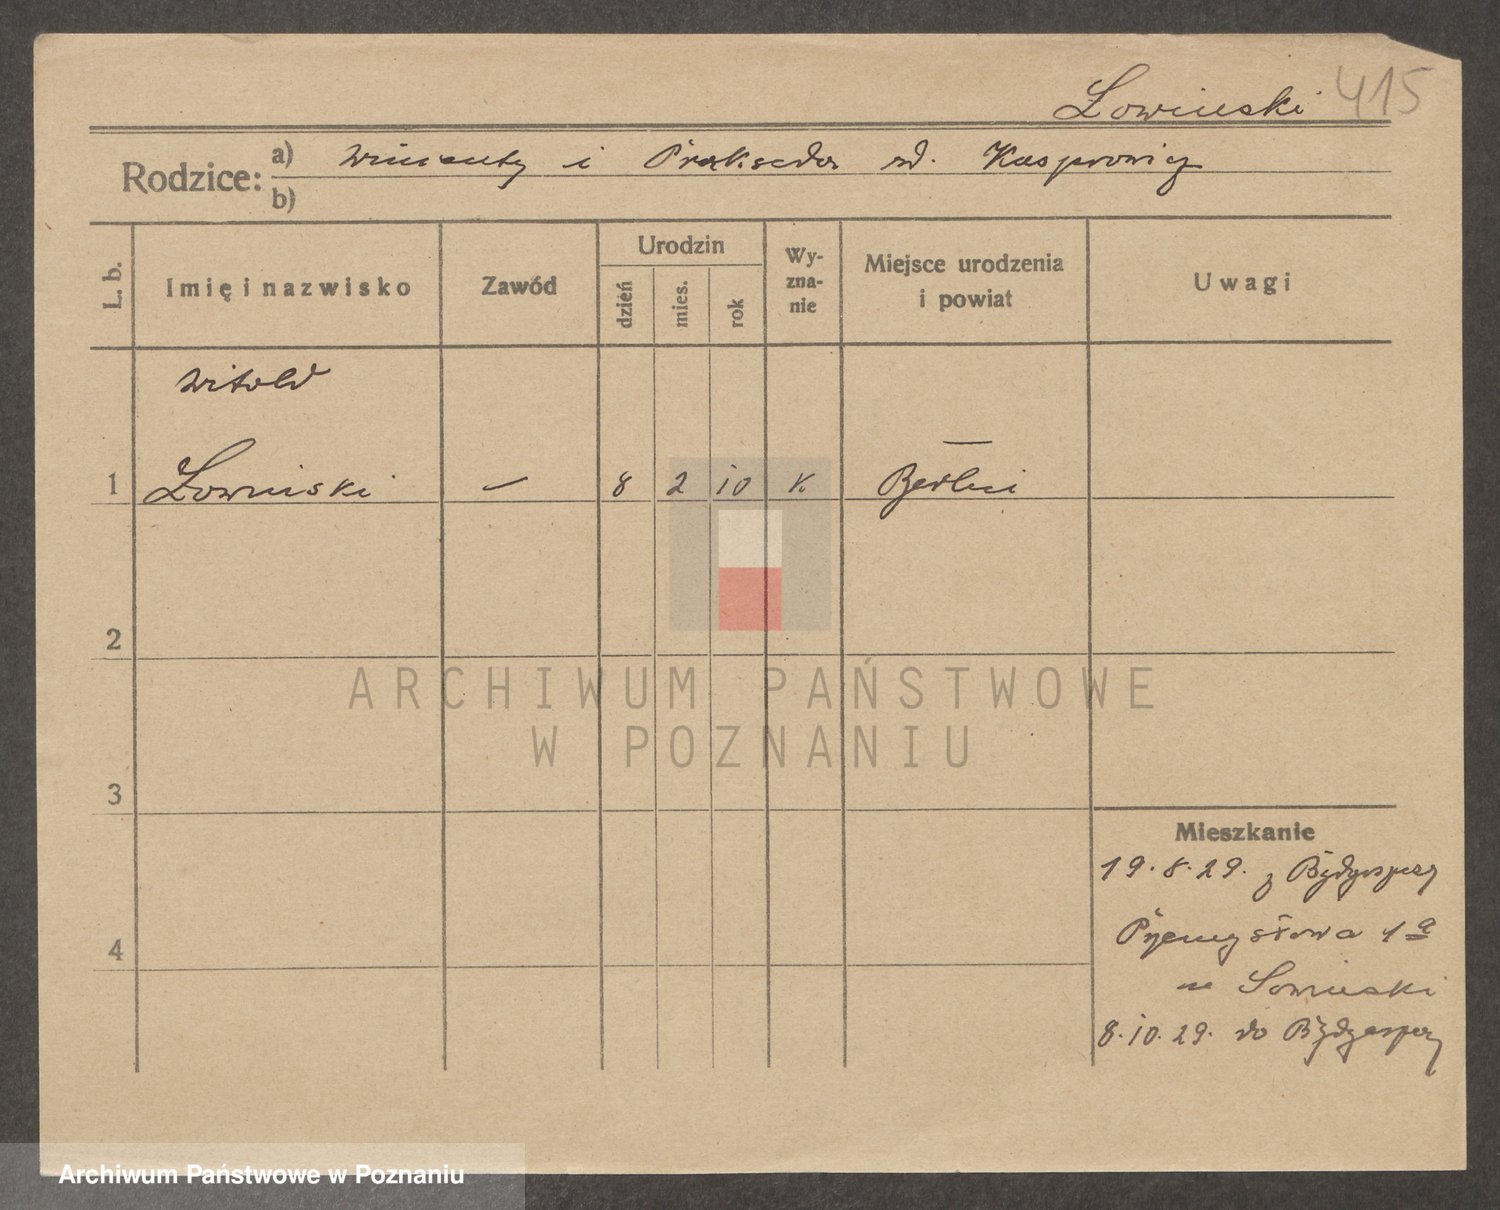 Łowinski 415
Rodzice: a) Wincenty i Prakseda rd. Kasprowicz
b)
L. b. Imię i nazwisko Zawód Urodzin dzień mies. rok Wy-zna-nie Miejsce urodzenia i powiat Uwagi
Witold
1 Łowinski — 8 2 10 K Berlin
2
ARCHIWUM PAŃSTWOWE
W POZNANIU
3
Mieszkanie
19.8.29. z Bydgoszczy
4 Przemysłowa 1a
8.10.29. do Bydgoszczy
Archiwum Państwowe w Poznaniu